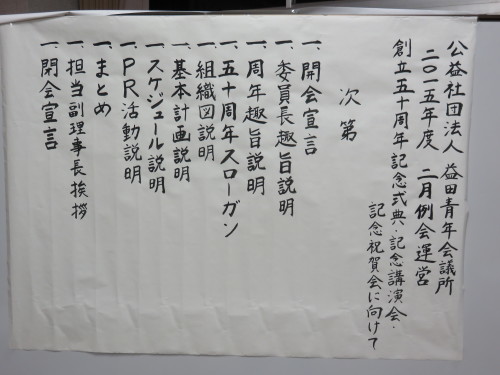 公益社団法人 益田青年会議所
二〇一五年度 二月例会運営
創立五十周年記念式典・記念講演会・
記念祝賀会に向けて
次第
一、開会宣言
一、委員長趣旨説明
一、周年趣旨説明
一、五十周年スローガン
一、組織図説明
一、基本計画説明
一、スケジュール説明
一、PR活動説明
一、まとめ
一、担当副理事長挨拶
一、閉会宣言